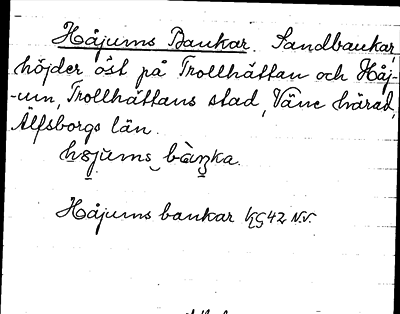 Håjums Bankar. Sandbankar,
höjder öst på Trollhättan och Håj-
-um, Trollhättans stad, Väne härad,
Älfsborgs län.
Håjums bankar KG42 N.V.